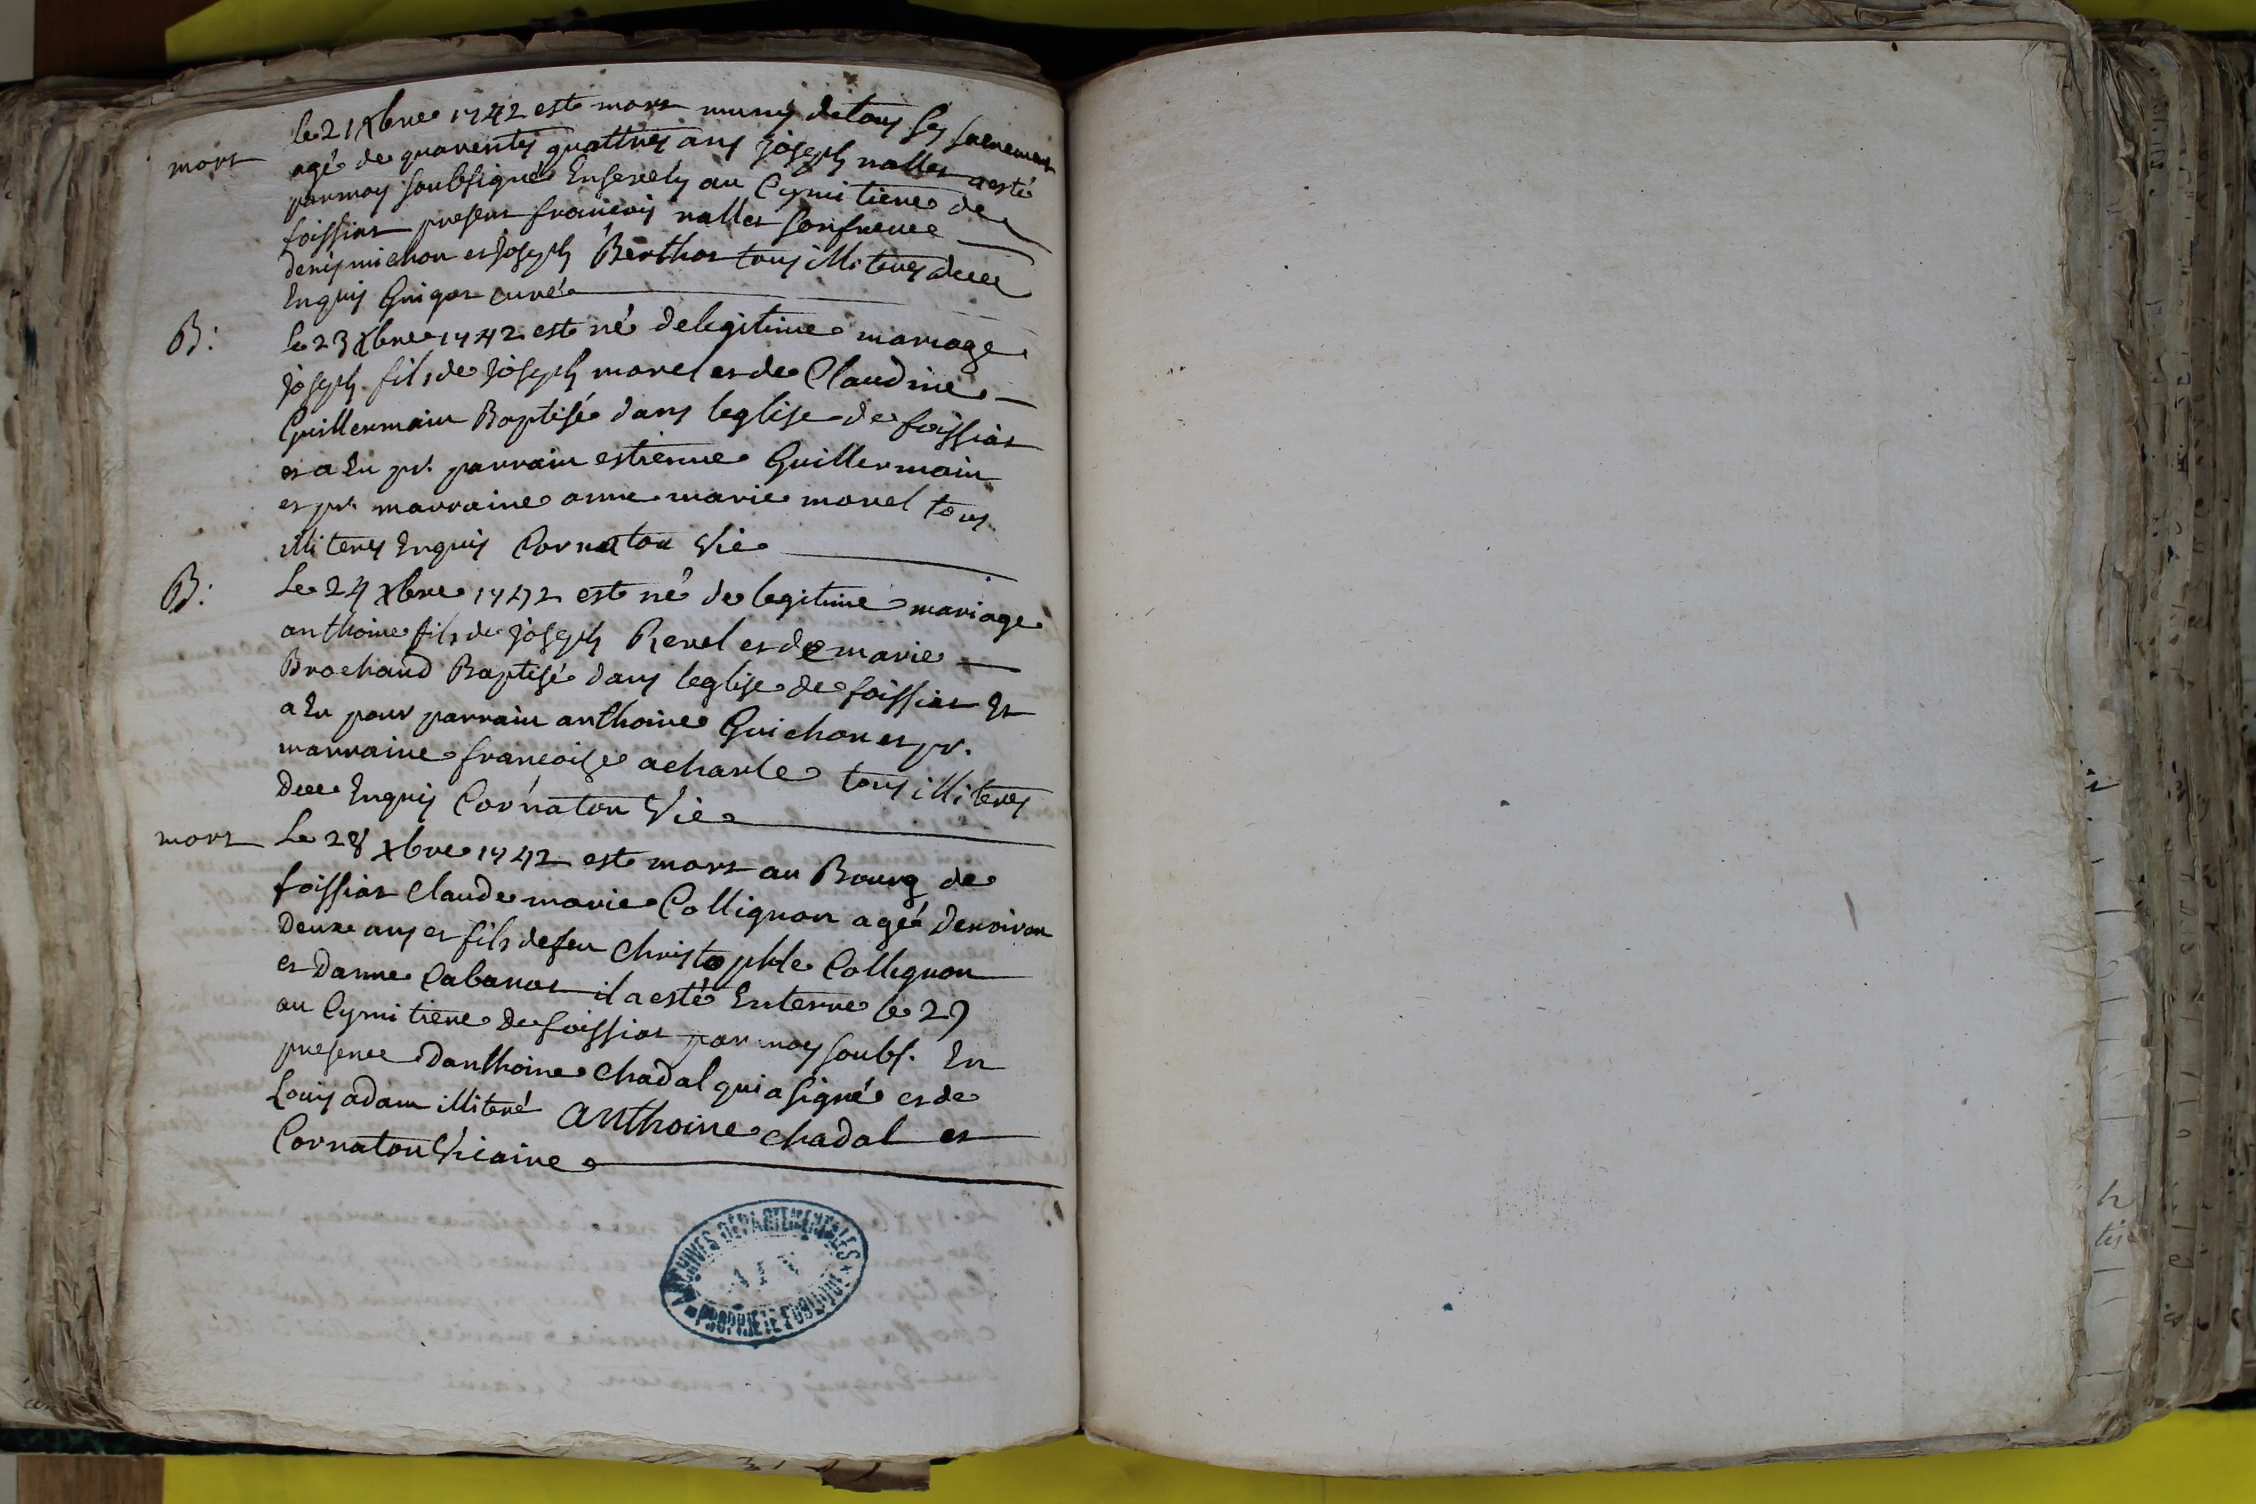 mort
le 21 Xbre 1742 est mort muny de tous ses sacrement
agé de quarentes quattres ans Joseph nallet a esté
par moy soubsigné Ensevely au Cymitiere de
foissiat present francois nallet son frere
denis michon et Joseph Berthot tous illiteres deue
Enquis Guigot curé
B:
le 23 Xbre 1742 est né de legitime mariage
Joseph fils de Joseph morel et de Claudine
Guillermain Baptisé dans leglise de foissiat
et a Eu pr. parrain estienne Guillermain
et pr. marraine anne marie morel tous
illiteres Enquis Cornaton Vie
B:
Le 24 xbre 1742 est né de legitime mariage
anthoine fils de Joseph Revel et de marie
Brochand Baptisé dans leglise de foissiat Et
a Eu pour parrain anthoine Guichon et pr.
marraine francoise acharle tous illiteres
deue Enquis Cornaton Vie
mort
Le 28 xbre 1742 est mort au Bourg de
foissiat Claude marie Collignon ageé denviron
deux ans et fils de feu Christophle Collignon
et danne Cabanot il a esté Enterre le 29
au Cymitiere de foissiat par moy soubs. En
presence danthoine Chadal qui a signé et de
Louis adam illiteré anthoine chadal et
Cornaton Vicaire
ARCHIVES DÉPARTEMENTALES
AIN
PROPRIÉTÉ PUBLIQUE